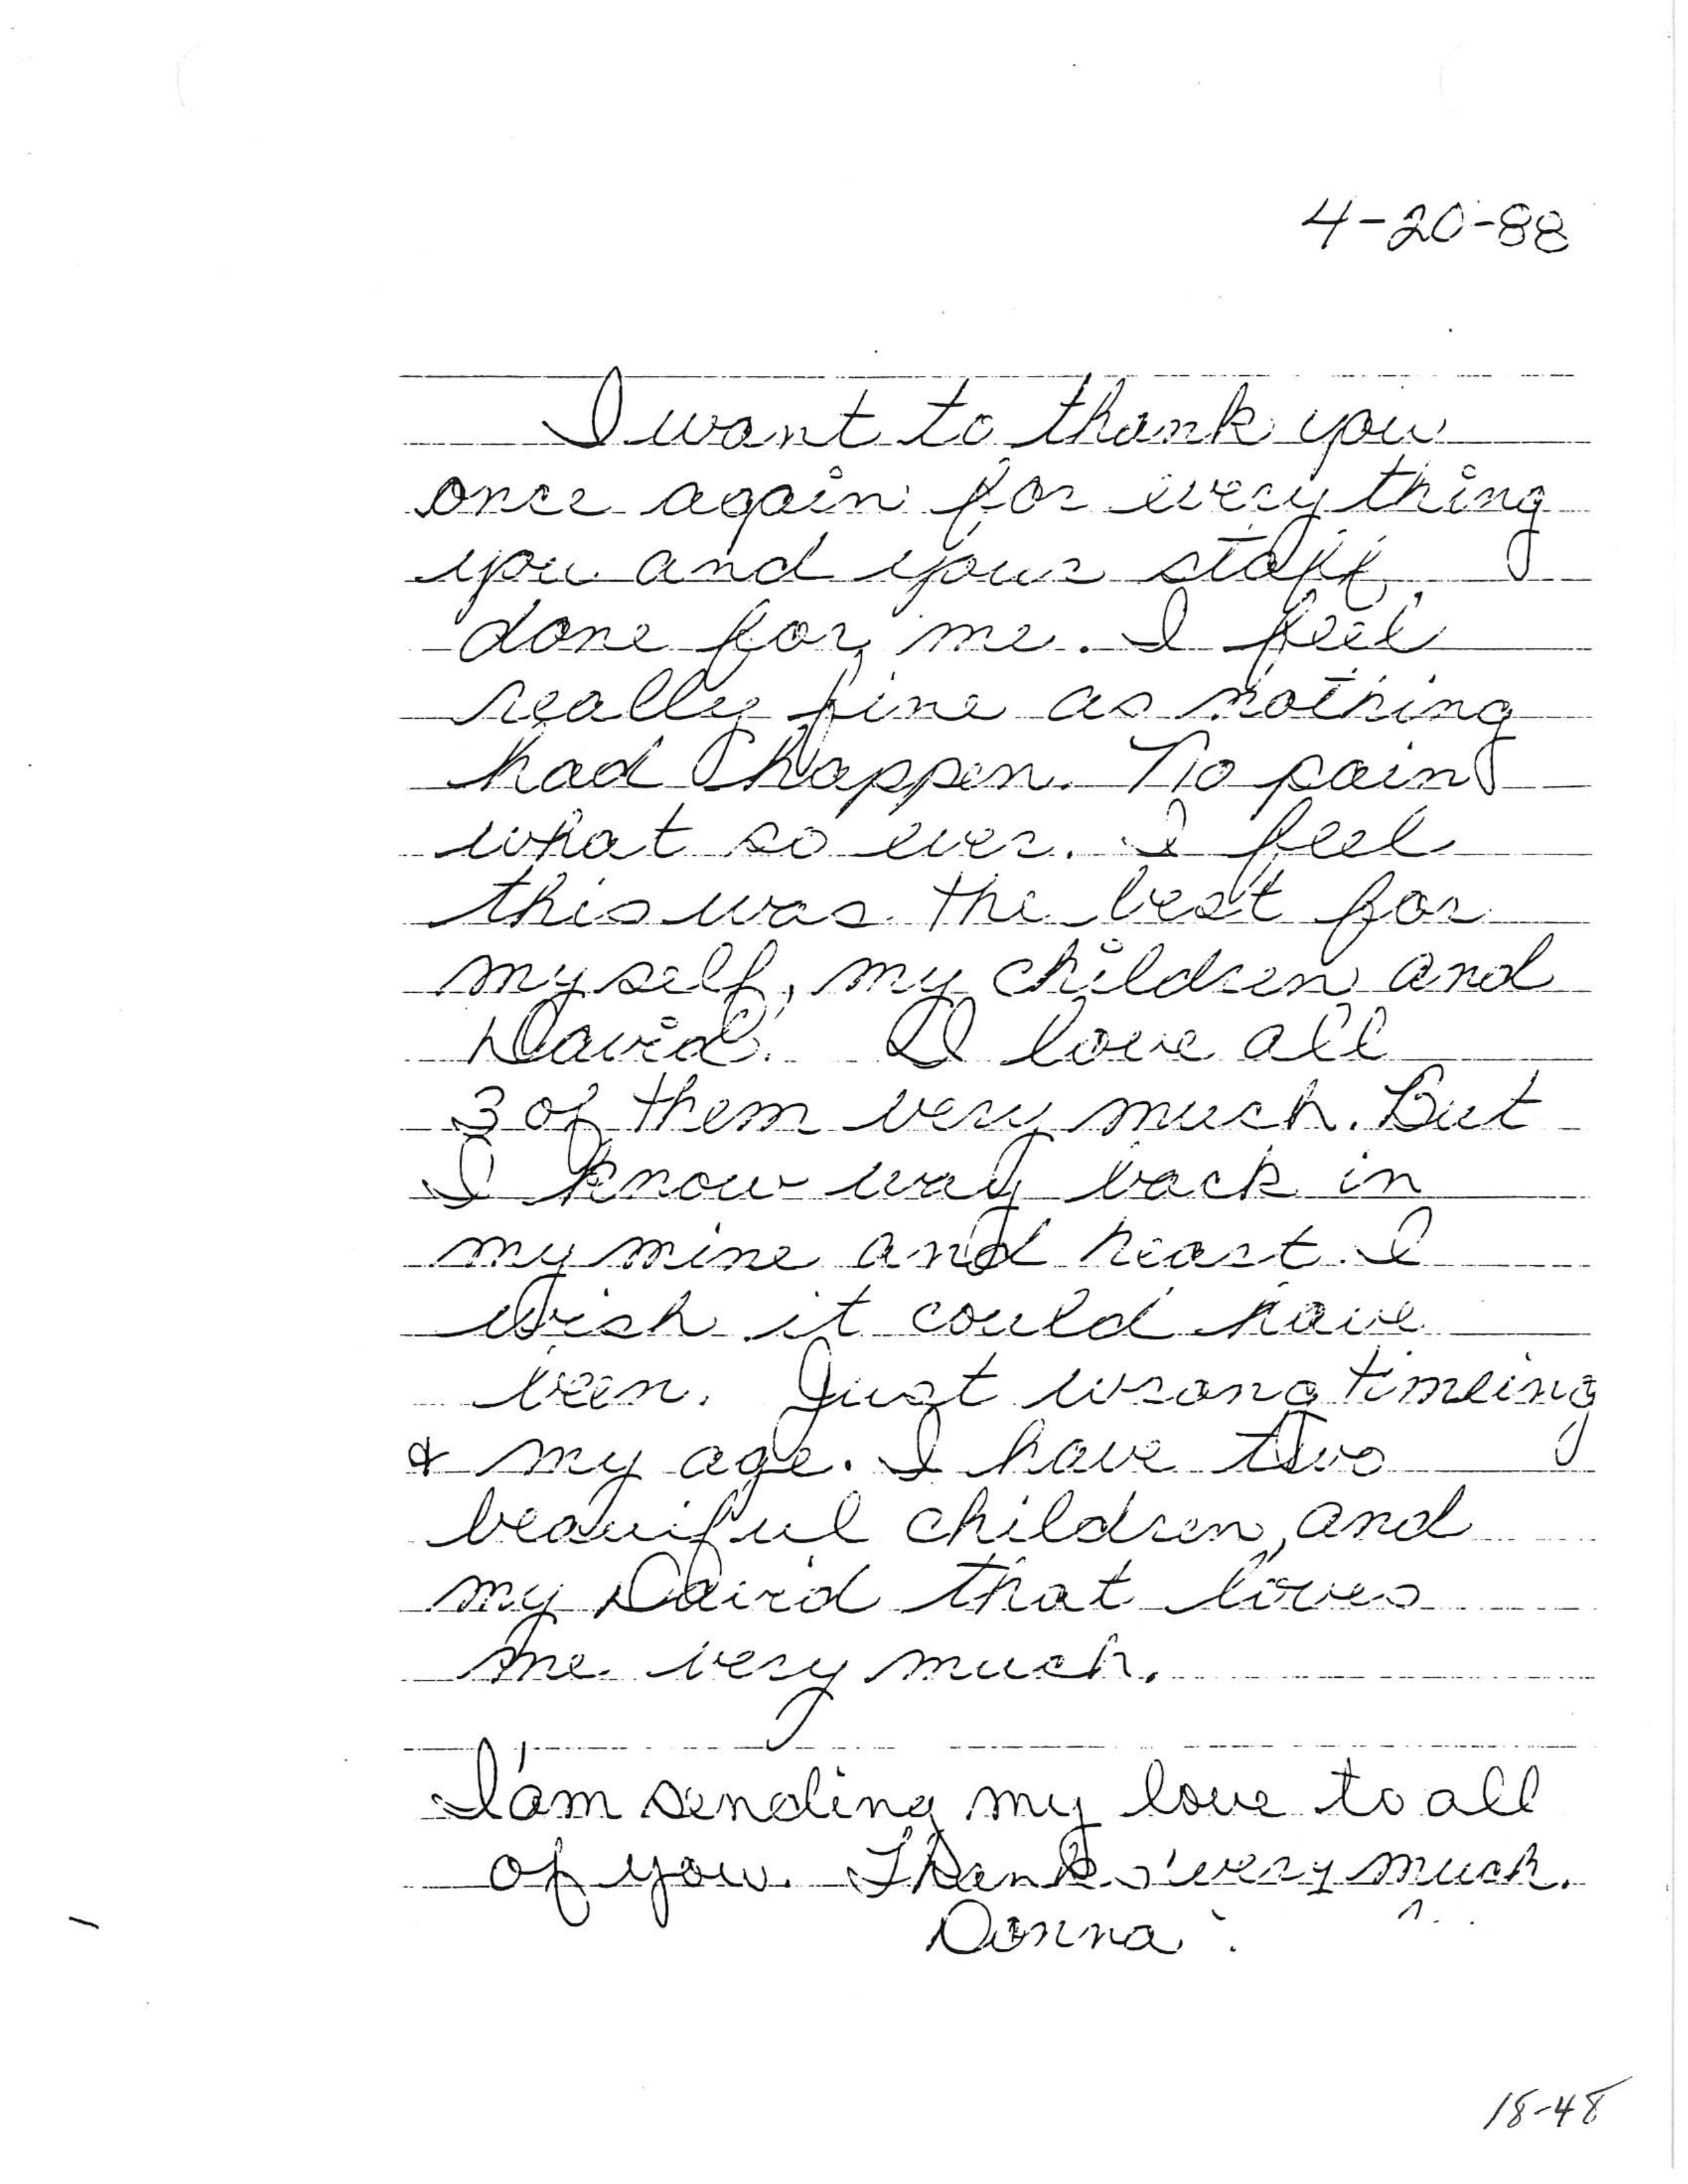 4-20-88
I want to thank you
once again for everything
you and your staff
done for me. I feel
really fine as nothing
had happen. No pain
what so ever. I feel
this was the best for
myself, my children and
David. I love all
3 of them very much. But
I know way back in
my mine and heart I
wish it could have
been. Just wrong timeing
& my age. I have two
beauiful children, and
my David that loves
me very much.
I'am sending my love to all
of you. Thanks very much.
Donna
18-48